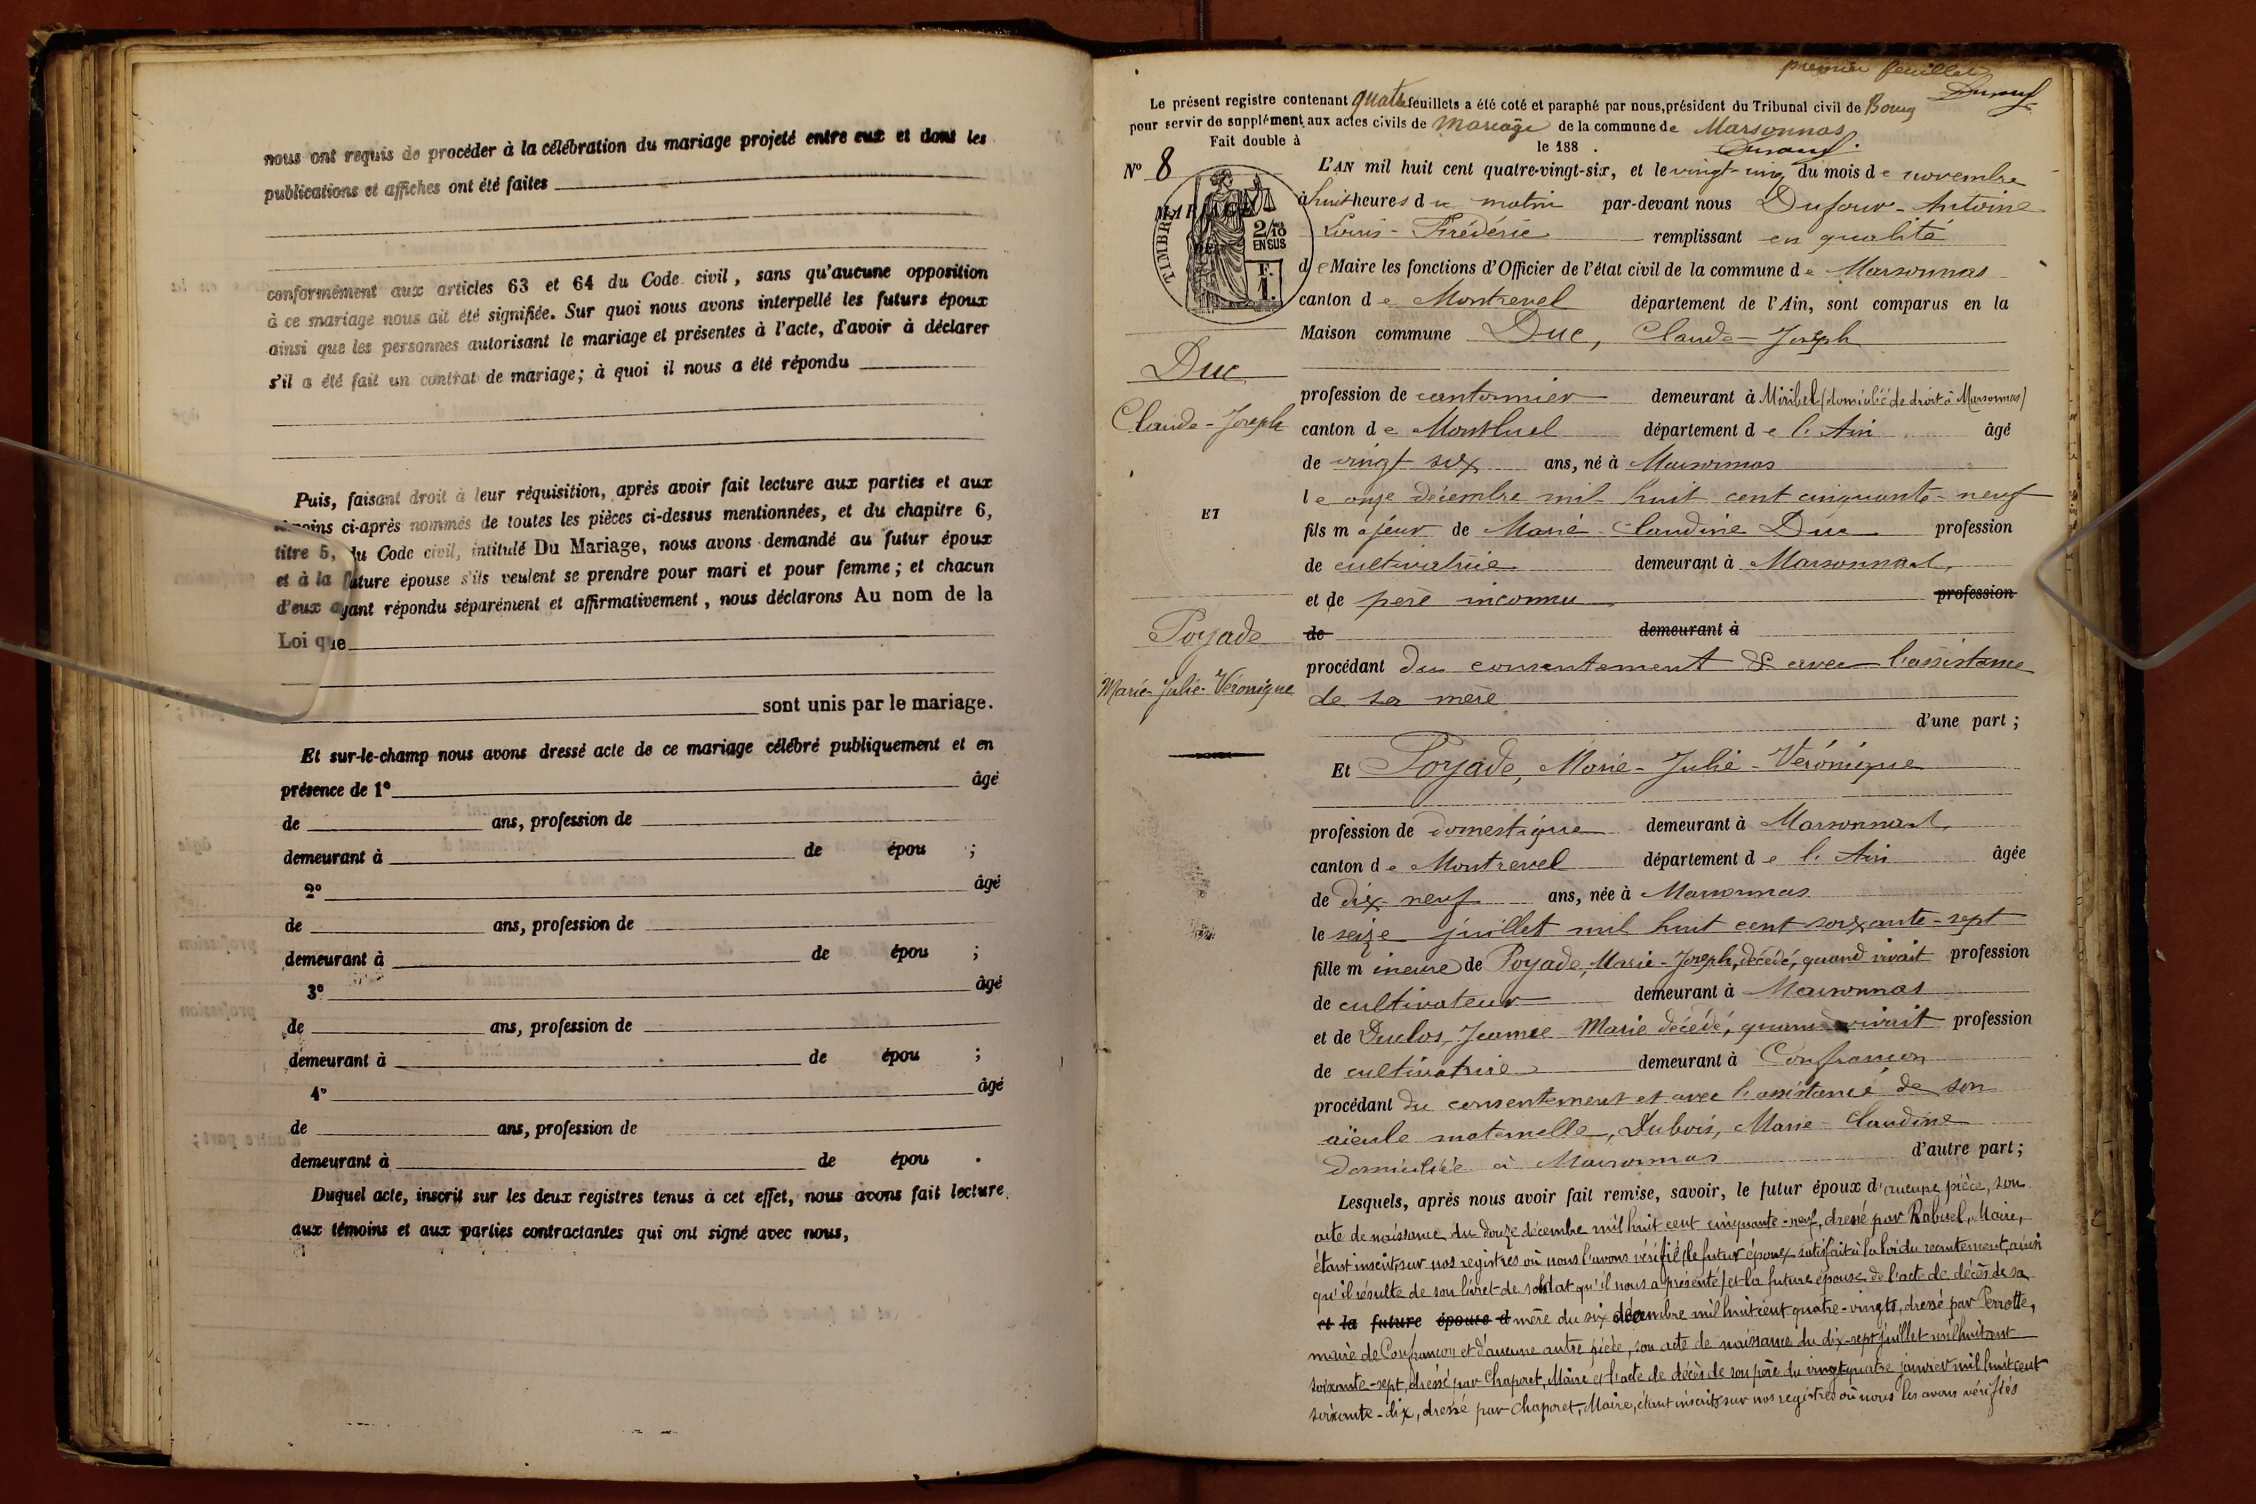 nous ont requis de procéder à la célébration du mariage projeté entre eux et dont les
publications et affiches ont été faites
conformément aux articles 63 et 64 du Code civil, sans qu'aucune opposition
à ce mariage nous ait été signifiée. Sur quoi nous avons interpellé les futurs époux
ainsi que les personnes autorisant le mariage et présentes à l'acte, d'avoir à déclarer
s'il a été fait un contrat de mariage; à quoi il nous a été répondu
Puis, faisant droit à leur réquisition, après avoir fait lecture aux parties et aux
témoins ci-après nommés de toutes les pièces ci-dessus mentionnées, et du chapitre 6,
titre 5, du Code civil, intitulé Du Mariage, nous avons demandé au futur époux
et à la future épouse s'ils veulent se prendre pour mari et pour femme; et chacun
d'eux ayant répondu séparément et affirmativement, nous déclarons Au nom de la
Loi que
sont unis par le mariage.
Et sur-le-champ nous avons dressé acte de ce mariage célébré publiquement et en
présence de 1° âgé
de ans, profession de
demeurant à de épou ;
2° âgé
de ans, profession de
demeurant à de épou ;
3° âgé
de ans, profession de
demeurant à de épou ;
4° âgé
de ans, profession de
demeurant à de épou .
Duquel acte, inscrit sur les deux registres tenus à cet effet, nous avons fait lecture
aux témoins et aux parties contractantes qui ont signé avec nous,
premier feuillet
Le présent registre contenant quatre feuillets a été coté et paraphé par nous, président du Tribunal civil de Bourg
pour servir de supplément aux actes civils de mariage de la commune de Marsonnas
Fait double à le 188 .
N° 8
MARIAGE
DE
TIMBRE
2/10 EN SUS
F. 1.
Duc
Claude-Joseph
ET
Poyade
Marie-Julie-Véronique
L'AN mil huit cent quatre-vingt-six, et le vingt-cinq du mois de novembre
à huit heures du matin par-devant nous Dufour-Antoine
Louis-Frédéric remplissant en qualité
de Maire les fonctions d'Officier de l'état civil de la commune de Marsonnas
canton de Montrevel département de l'Ain, sont comparus en la
Maison commune Duc, Claude-Joseph
profession de cantonnier demeurant à Miribel (domicilié de droit à Marsonnas)
canton de Montluel département de l'Ain âgé
de vingt six ans, né à Marsonnas
le onze décembre mil huit cent cinquante-neuf
fils majeur de Marie Claudine Duc profession
de cultivatrice demeurant à Marsonnas
et de père inconnu profession
de demeurant à
procédant du consentement & avec l'assistance
de sa mère
d'une part;
Et Poyade, Marie-Julie-Véronique
profession de domestique demeurant à Marsonnas
canton de Montrevel département de l'Ain âgée
de dix neuf ans, née à Marsonnas
le seize juillet mil huit cent soixante-sept
fille mineure de Poyade, Marie-Joseph, décédé, quand vivait profession
de cultivateur demeurant à Marsonnas
et de Duclos, Jeanne Marie décédé, quand vivait profession
de cultivatrice demeurant à Confrançon
procédant du consentement et avec l'assistance de son
aïeule maternelle, Dubois, Marie-Claudine
domiciliée à Marsonnas d'autre part;
Lesquels, après nous avoir fait remise, savoir, le futur époux d'aucune pièce, son
acte de naissance du douze décembre mil huit cent cinquante-neuf, dressé par Rabuel, Maire,
étant inscrit sur nos registres où nous l'avons vérifié (le futur époux satisfait à la loi du recrutement, ainsi
qu'il résulte de son livret de soldat qu'il nous a présenté) et la future épouse de l'acte de décès de sa
et la future épouse d mère du six décembre mil huit cent quatre-vingts, dressé par Perrotte,
maire de Confrançon et d'aucune autre pièce, son acte de naissance du dix-sept juillet mil huit cent
soixante-sept, dressé par Chaporet, Maire et l'acte de décès de son père du vingt quatre janvier mil huit cent
soixante-dix, dressé par Chaporet, Maire, étant inscrits sur nos registres où nous les avons vérifiés